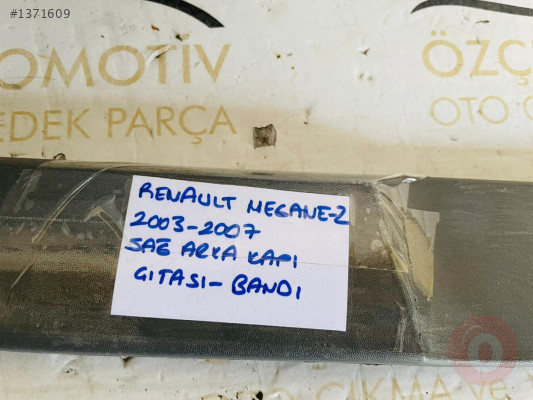 #1371609
OMOTİV
EDEK PARÇA
ÖZÇ
OTO
RENAULT MEGANE-2
2003-2007
SAĞ ARKA KAPI
GITASI-BANDI
ÇIKMA VE